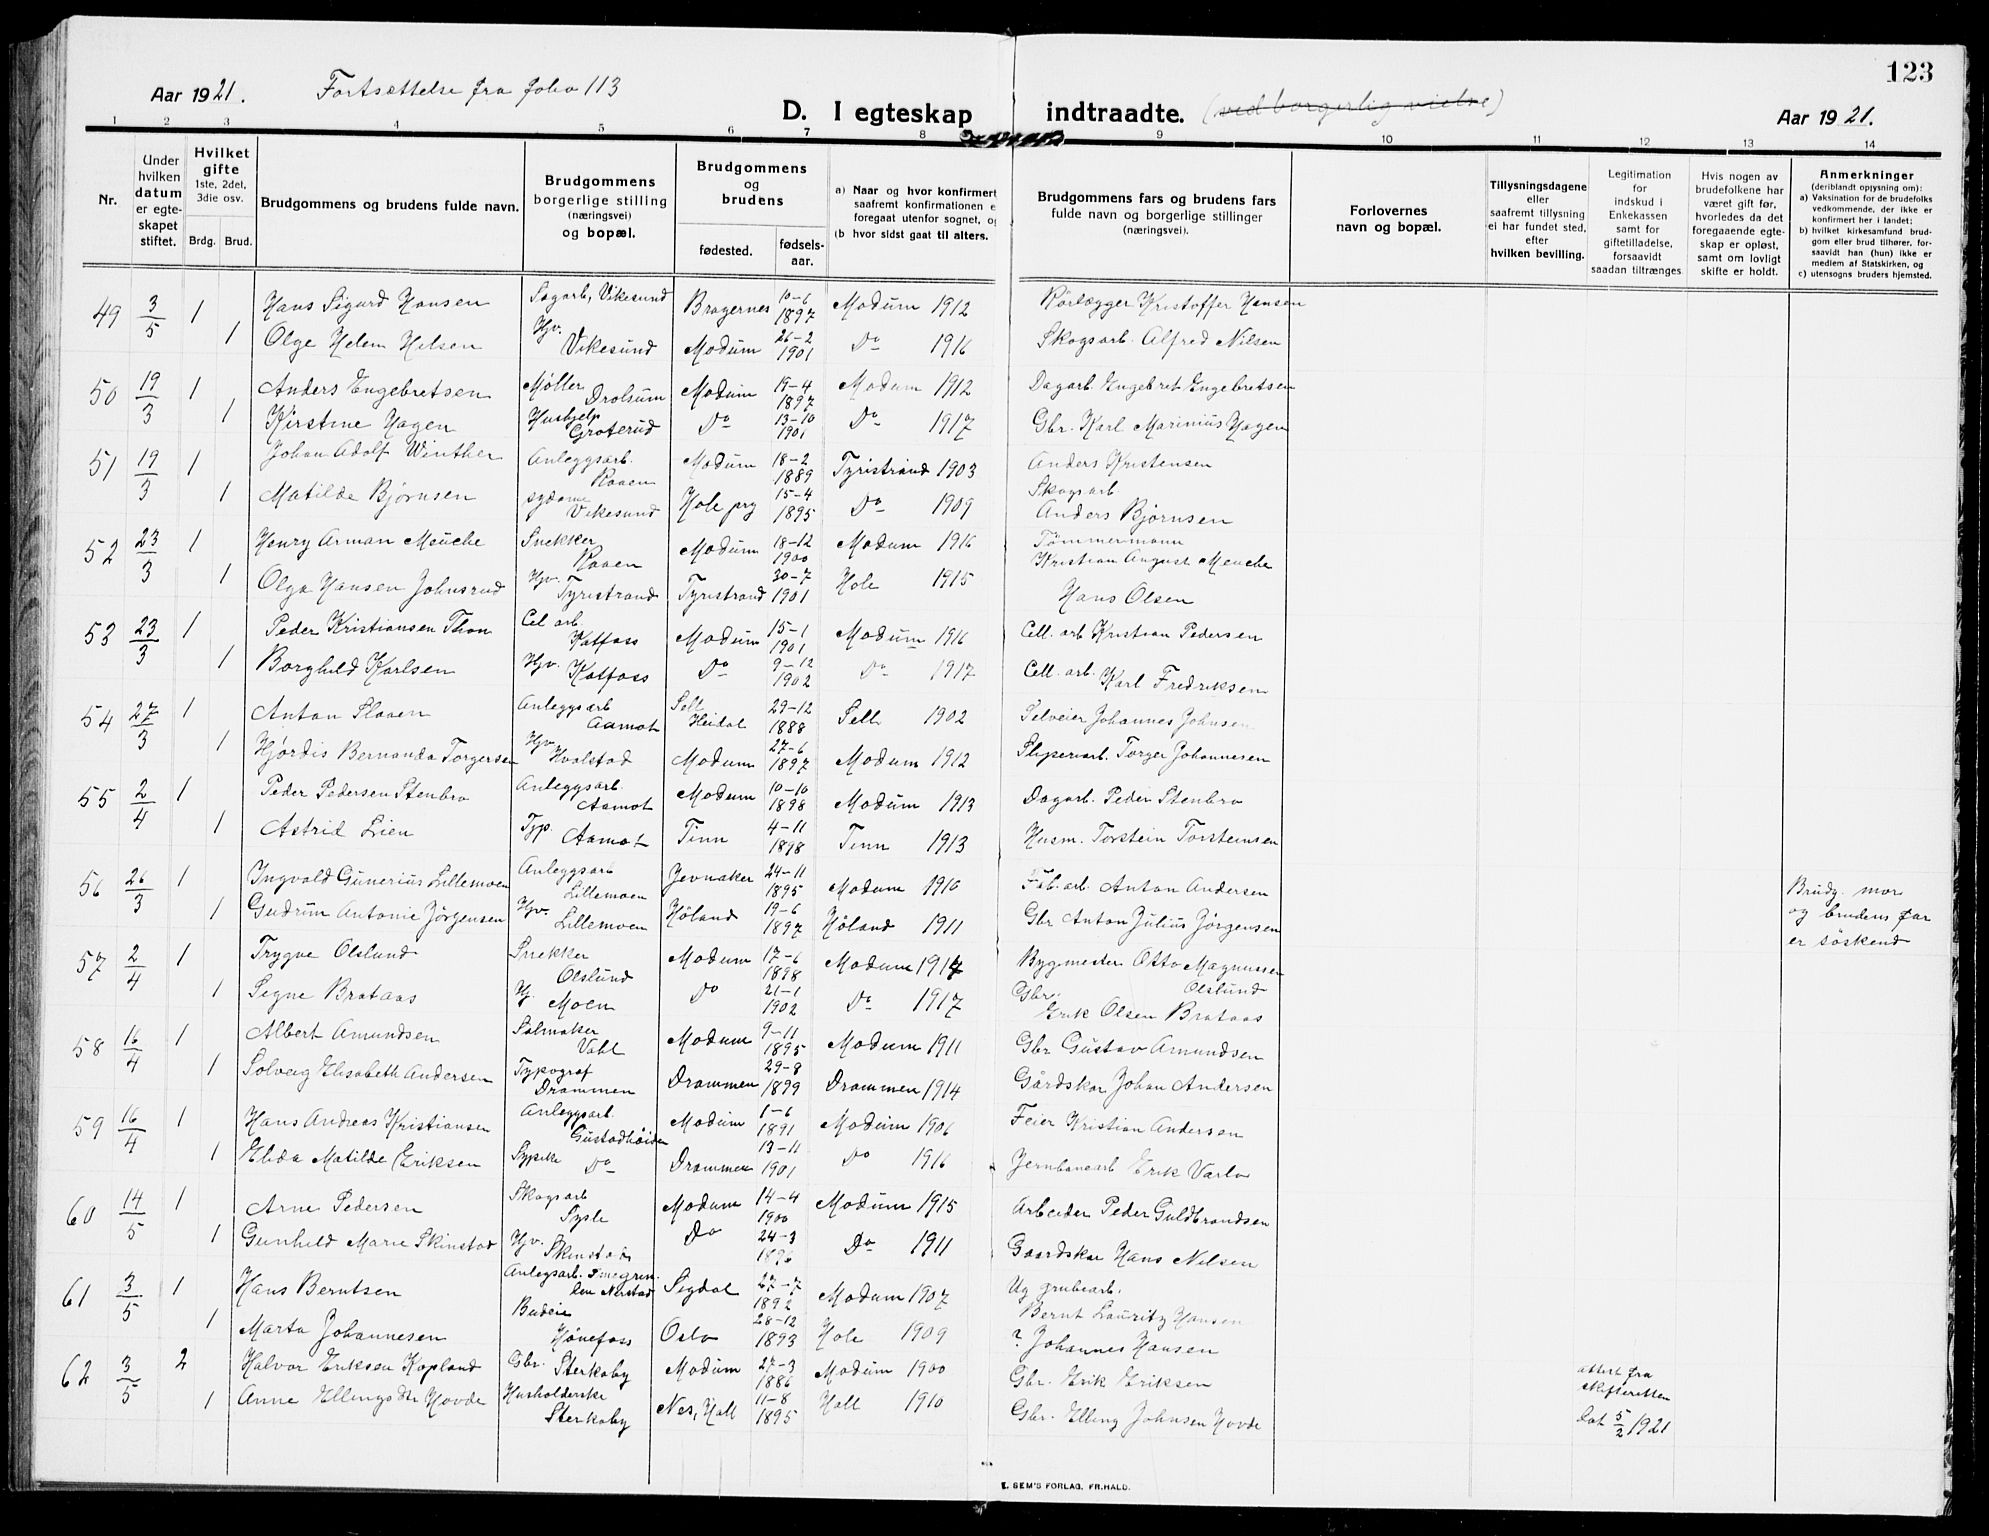 123
Aar 1921. Fortsættelse fra folio 113
D. I egteskap indtraadte. (ved borgerlig vielse)
Aar 1921.
1 2 3 4 5 6 7 8 9 10 11 12 13 14
Nr.
Under hvilken datum er egteskapet stiftet.
Hvilket gifte 1ste, 2det, 3die osv.
Brdg. Brud.
Brudgommens og brudens fulde navn.
Brudgommens borgerlige stilling (næringsvei) og bopæl.
Brudgommens og brudens
fødested. fødselsaar.
a) Naar og hvor konfirmert saafremt konfirmationen e foregaat utenfor sognet, o
(b hvor sidst gaat til alters.
Brudgommens fars og brudens fars fulde navn og borgerlige stillinger (næringsvei).
Forlovernes navn og bopæl.
Tillysningsdagene eller saafremt tillysning ei har fundet sted, efter hvilken bevilling.
Legitimation for indskud i Enkekassen samt for giftetilladelse, forsaavidt saadan tiltrænges
Hvis nogen av brudefolkene har været gift før, hvorledes da det foregaaende egteskap er opløst, samt om lovligt skifte er holdt.
Anmerkninger (deriblandt opjysning om):
a) Vaksination for de brudefolks vedkommende, der ikke er konfirmert her i landet;
b) hvilket kirkesamfund brudgom eller brud tilhører, forsaavidt han (hun) ikke er medlem af Statskirken, og
c) utensogns bruders hjemsted.
49 3/5 1 Hans Sigurd Hansen Sagarb, Vikesund Bragernes 10-6 1897 Modum 1912 Rørlægger Kristoffer Hansen
1 Olge Helem Nilsen Hjv. Vikesund Modum 26-2 1901 Do 1916 Skogsarb. Alfred Nilsen
50 19/3 1 Anders Engebretsen Møller Drolsum Modum 19-4 1897 Modum 1912 Dagarb. Engebret Engebretsen
1 Kirstine Hagen Hushjelp Groterud Do 13-10 1901 Do 1917 Gbr. Karl Marinius Hagen
51 19/3 1 Johan Adolf Winther Anleggsarb. Raaen Modum 18-2 1889 Tyristrand 1903 Anders Kristensen
1 Matilde Bjørnsen sydame Vikesund Hole prg 15-4 1895 Do 1909 Skogsarb. Anders Bjørnsen
52 23/3 1 Henry Arman Meuche Snekker Raaen Modum 18-12 1900 Modum 1916 Tømmermann Kristian August Meuche
1 Olga Hansen Johnsrud Hjv. Tyristrand Tyristrand 30-7 1901 Hole 1915 Hans Olsen
53 23/3 1 Peder Kristiansen Thon Cel arb Katfoss Modum 15-1 1901 Modum 1916 Cell. arb Kristian Pedersen
1 Borghild Karlsen Hjv. Katfoss Do 9-12 1902 Do 1917 Cell. arb. Karl Fredriksen
54 27/3 1 Anton Slaaen Anleggsarb Aamot Sell Heidal 29-12 1888 Sell 1902 Selveier Johannes Johnsen
1 Hjørdis Bernanda Torgersen Hjv Hvalstad Modum 27-6 1897 Modum 1912 Sliperiarb. Torger Johannesen
55 2/4 1 Peder Pedersen Stenbro Anleggsarb. Aamot Modum 10-10 1898 Modum 1913 Dagarb. Peder Stenbro
1 Astrid Lien Typ. Aamot Tinn 4-11 1898 Tinn 1913 Husm. Torstein Torsteinsen
56 26/3 1 Ingvald Gunerius Lillemoen Anleggsarb Lillemoen Jevnaker 24-11 1895 Modum 1910 Fab. arb. Anton Andersen Brudg. mor
1 Gudrun Antonie Jørgensen Hjv. Lillemoen Høland 19-6 1897 Høland 1911 Gbr Anton Julius Jørgensen og brudens far er søskend
57 2/4 1 Trygve Olslund Snekker Olslund Modum 17-6 1898 Modum 1914 Bygmester Otto Magnussen Olslund
1 Segne Brataas Hj. Moen Do 21-1 1902 Do 1917 Gbr. Erik Olsen Brataas
58 16/4 1 Albert Amundsen Salmaker Vahl Modum 9-11 1895 Modum 1911 Gbr Gustav Amundsen
1 Solveig Elisabeth Andersen Typograf Drammen Drammen 29-8 1899 Drammen 1914 Gårdskar Johan Andersen
59 16/4 1 Hans Andreas Kristiansen Anleggsarb. Gustadheiden Modum 1-6 1891 Modum 1906 Feier Kristian Andersen
1 Elida Matilde Eriksen Sypike Do Drammen 13-11 1901 Do 1916 Jernbanearb Erik Varlo
60 14/5 1 Arne Pedersen Skogsarb Sysle Modum 14-4 1900 Modum 1915 Arbeider Peder Guldbrandsen
1 Gunhild Marie Skinstad Hjv. Skinstad Do 24-3 1896 Do 1911 Gaardskar Hans Nilsen
61 3/5 1 Hans Berntsen Anlegsarb. Nerstad Sigdal 27-7 1892 Modum 1907 Ug grubearb. Bernt Lauritz Hansen
1 Marta Johannesen Budeie Hønefoss Oslo 28-12 1893 Hole 1909 ? Johannes Hansen
62 3/5 2 Halvor Eriksen Kopland Gbr. Sterkeby Modum 27-3 1886 Modum 1900 Gbr. Erik Eriksen attest fra skifteretten dat 5/2 1921
1 Anne Ellingsdtr Hovde Husholderske Sterkeby Nes, Hall 11-8 1895 Hall 1910 Gbr. Elling Johnsen Hovde
E. SEM'S FORLAG. FR.HALD.